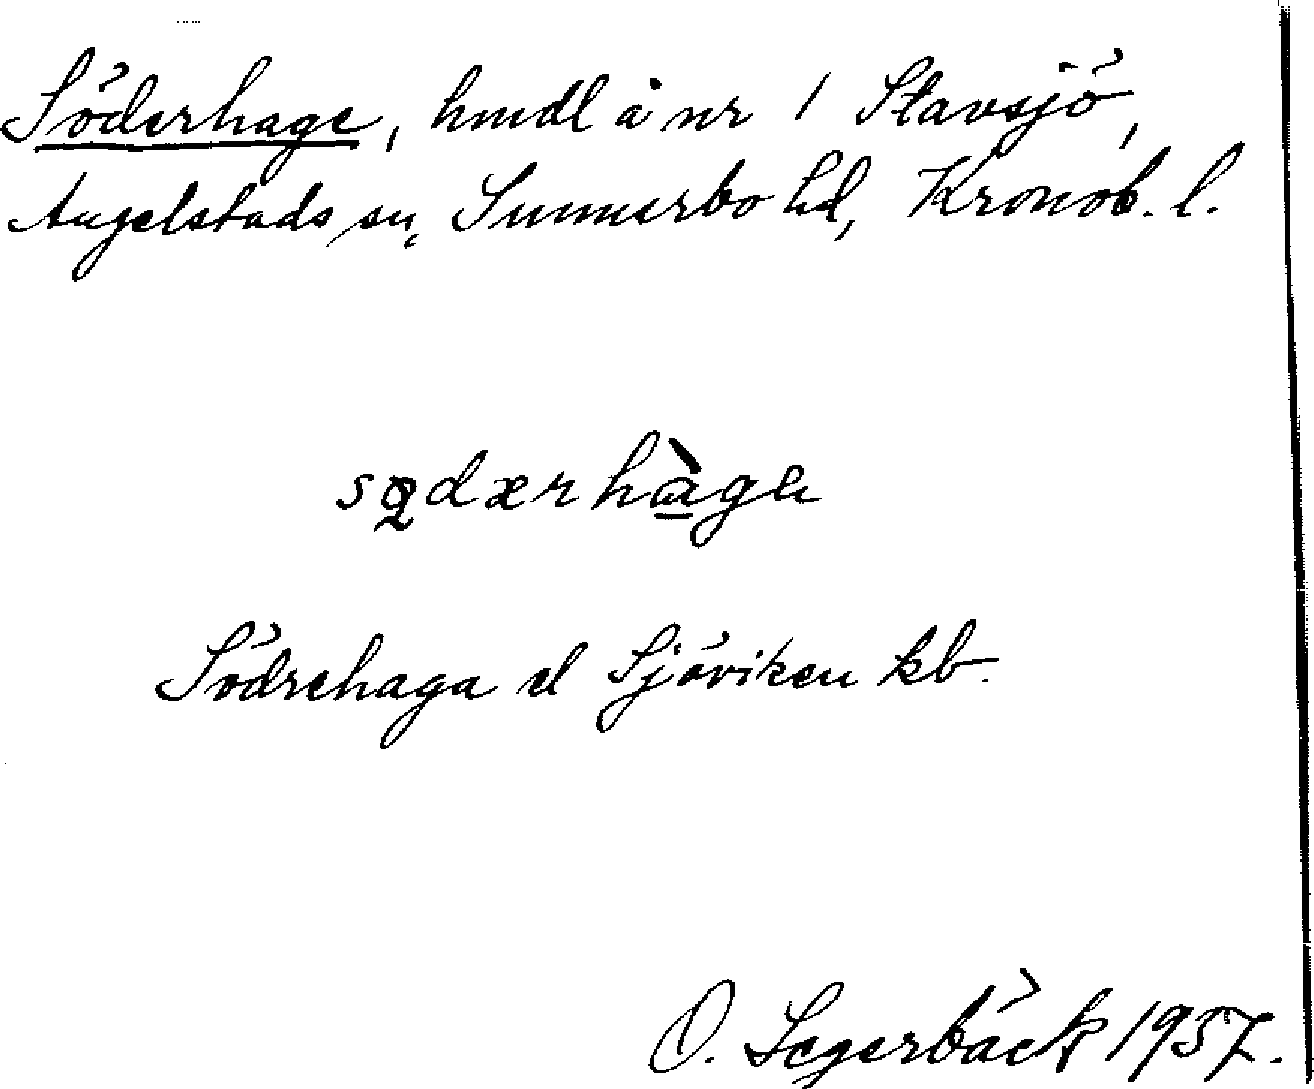 Söderhage, hmdl å nr 1 Stavsjö,
Angelstads sn, Sunnerbo hd, Kronob. l.
södærhàga
Södrehaga el Sjöviken kb.
O. Segerbäck 1937.